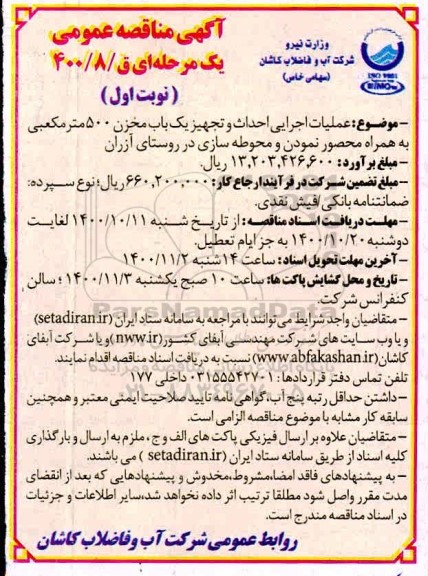 وزارت نیرو
شرکت آب و فاضلاب کاشان
(سهامی خاص)
ISO 9001
آگهی مناقصه عمومی
یک مرحله‌ای ق/۴۰۰/۸
(نوبت اول)
- موضوع: عملیات اجرایی احداث و تجهیز یک باب مخزن ۵۰۰ مترمکعبی
به همراه محصور نمودن و محوطه سازی در روستای آزران
- مبلغ برآورد: ۱۳,۲۰۳,۴۲۶,۶۰۰ ریال.
- مبلغ تضمین شرکت در فرآیند ارجاع کار: ۶۶۰,۲۰۰,۰۰۰ ریال؛ نوع سپرده:
ضمانتنامه بانکی/فیش نقدی.
- مهلت دریافت اسناد مناقصه: از تاریخ شنبه ۱۴۰۰/۱۰/۱۱ لغایت
دوشنبه ۱۴۰۰/۱۰/۲۰ به جز ایام تعطیل.
- آخرین مهلت تحویل اسناد: ساعت ۱۴ شنبه ۱۴۰۰/۱۱/۲
- تاریخ و محل گشایش پاکت ها: ساعت ۱۰ صبح یکشنبه ۱۴۰۰/۱۱/۳؛ سالن
کنفرانس شرکت.
- متقاضیان واجد شرایط می توانند با مراجعه به سامانه ستاد ایران (setadiran.ir)
و یا وب سایت های شرکت مهندسی آبفای کشور (nww.ir) و یا شرکت آبفای
کاشان (www.abfakashan.ir) نسبت به دریافت اسناد مناقصه اقدام نمایند.
تلفن تماس دفتر قراردادها: ۱-۰۳۱۵۵۵۴۲۷ داخلی ۱۷۷
- داشتن حداقل رتبه پنج آب، گواهی نامه تایید صلاحیت ایمنی معتبر و همچنین
سابقه کار مشابه با موضوع مناقصه الزامی است.
- متقاضیان علاوه بر ارسال فیزیکی پاکت های الف و ج، ملزم به ارسال و بارگذاری
کلیه اسناد از طریق سامانه ستاد ایران (setadiran.ir) می باشند.
- به پیشنهادهای فاقد امضا، مشروط، مخدوش و پیشنهادهایی که بعد از انقضای
مدت مقرر واصل شود مطلقا ترتیب اثر داده نخواهد شد، سایر اطلاعات و جزئیات
در اسناد مناقصه مندرج است.
روابط عمومی شرکت آب وفاضلاب کاشان